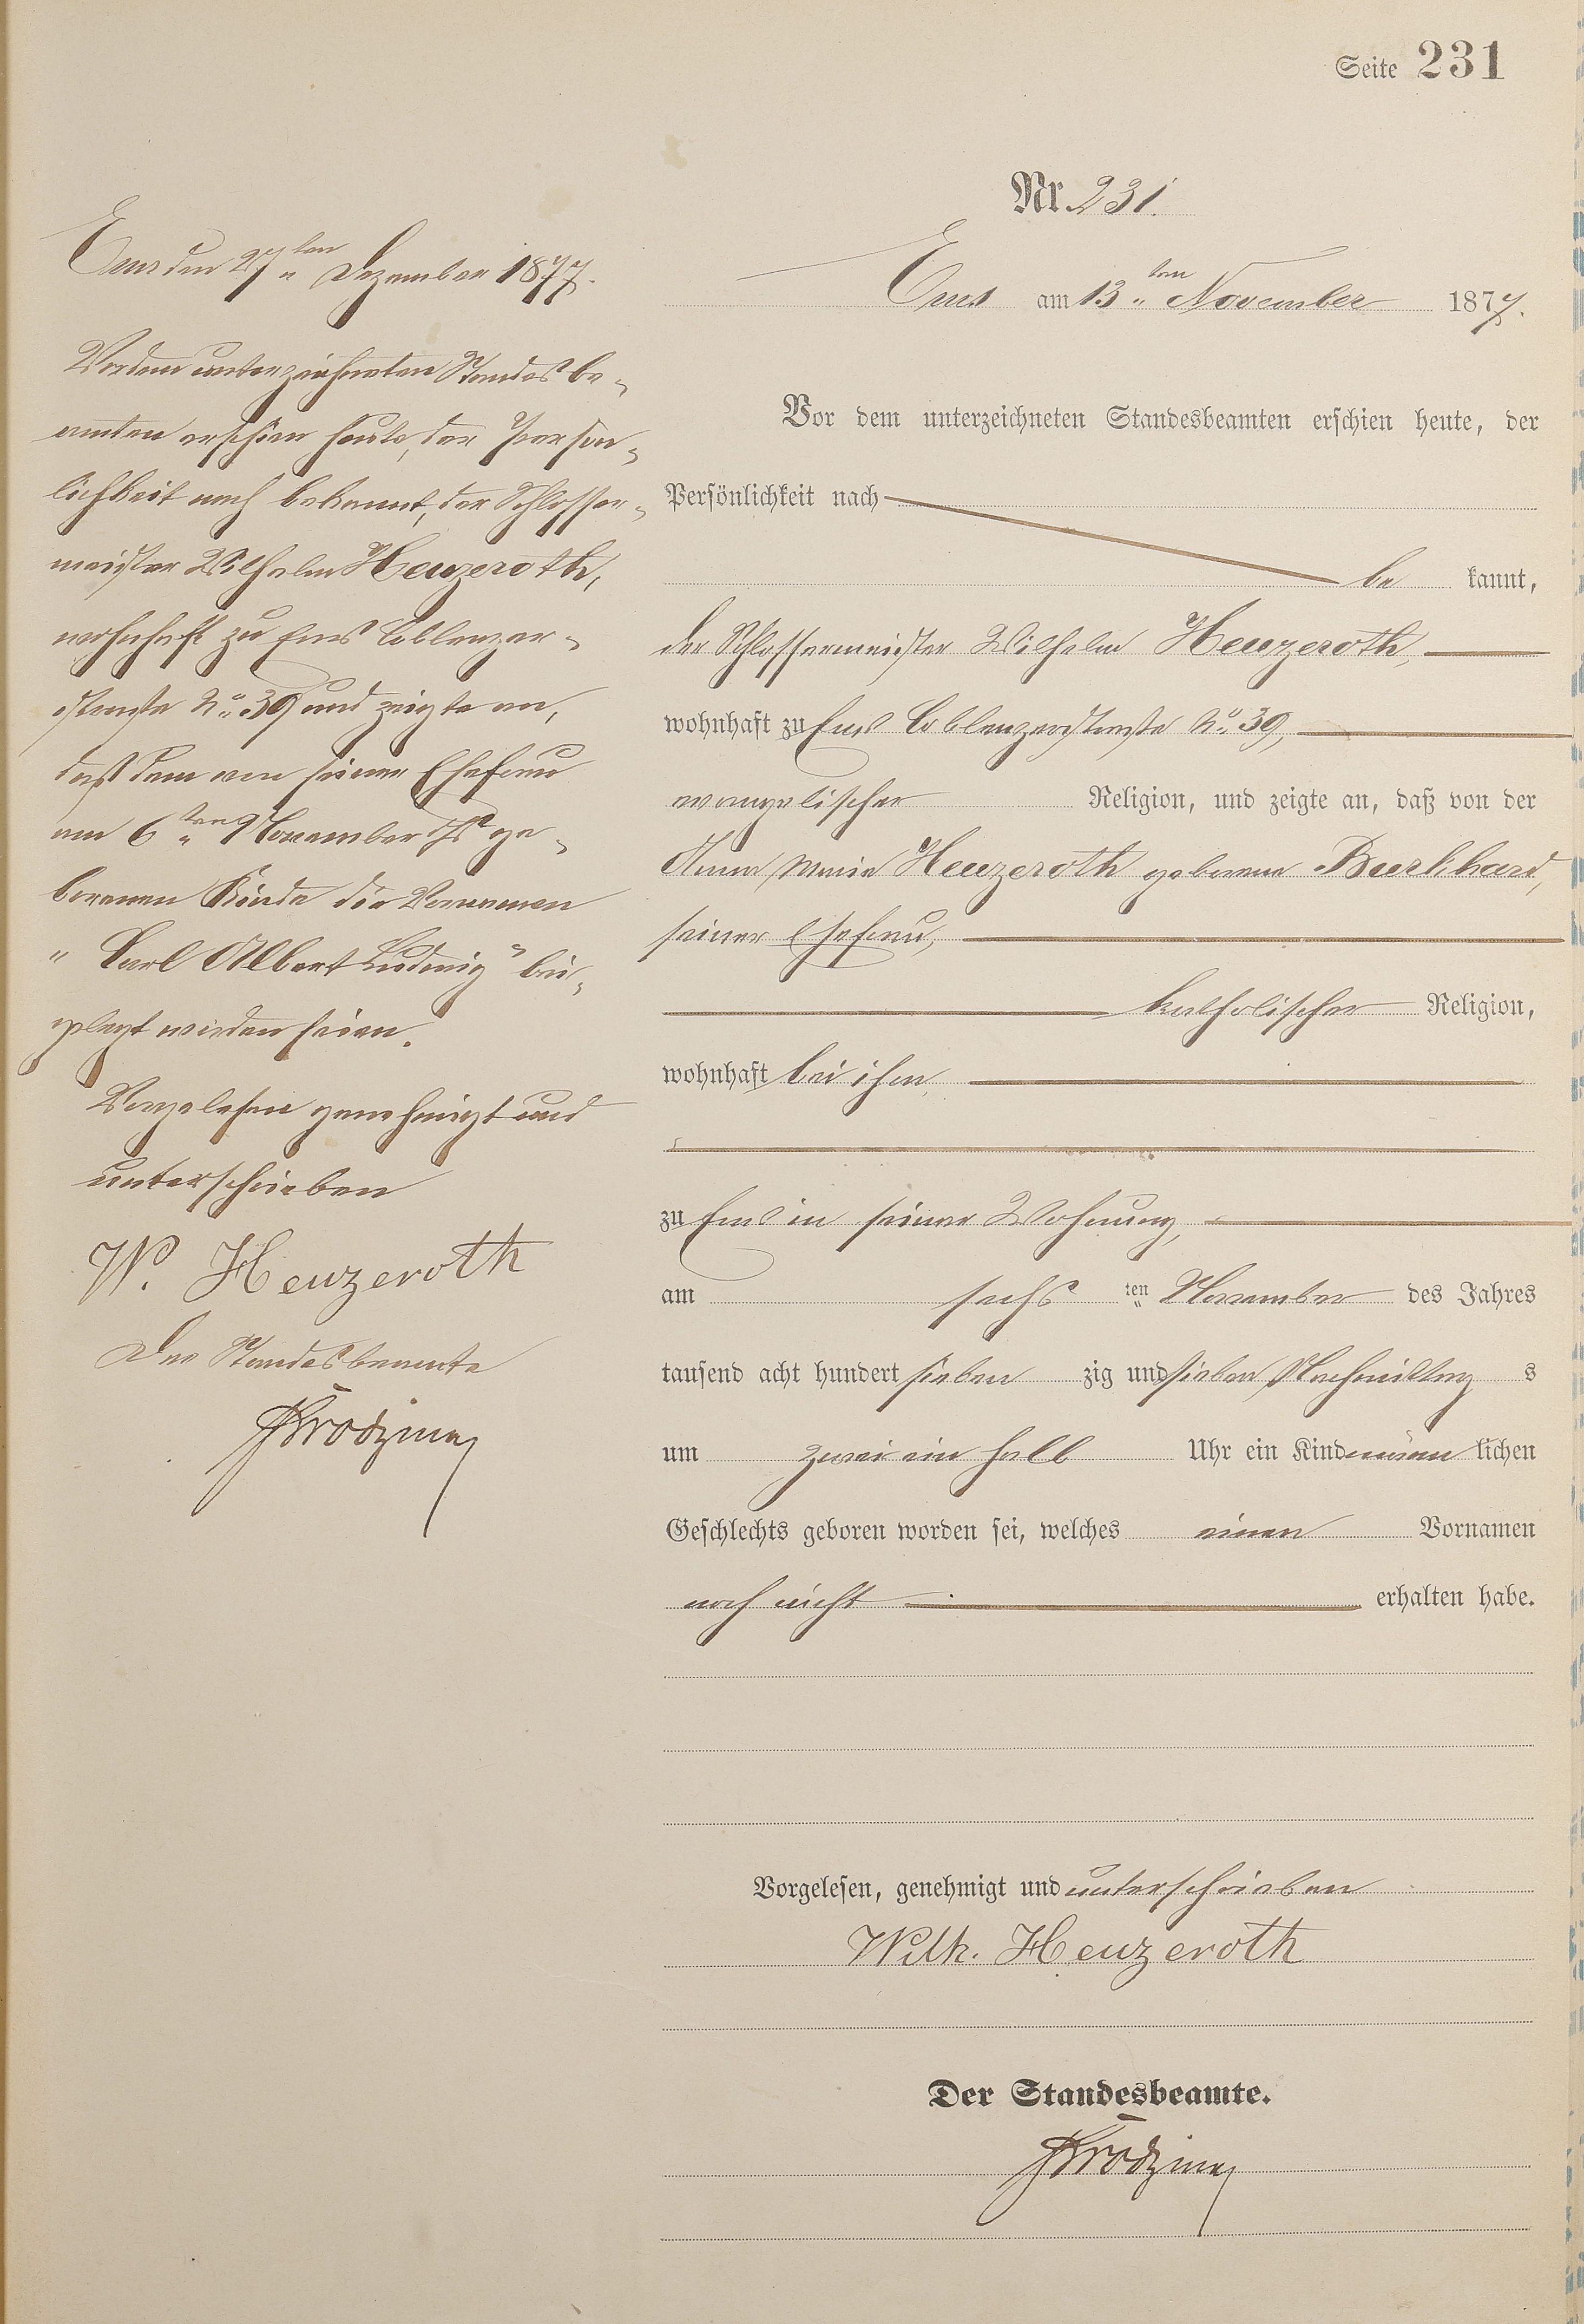 Seite 231
Nr. 231.
Ems am 13ten November 1877.
Vor dem unterzeichneten Standesbeamten erschien heute, der
Persönlichkeit nach
be kannt,
der Schlossermeister Wilhelm Heuzeroth,
wohnhaft zu Ems Coblenzerstraße No. 39,
evangelischer Religion, und zeigte an, daß von der
Anna Maria Heuzeroth geborene Burkhard,
seiner Ehefrau,
katholischer Religion,
wohnhaft bei ihm,
zu Ems in seiner Wohnung,
am sechs ten November des Jahres
tausend acht hundert sieben zig und sieben Nachmittag s
um zwei ein halb Uhr ein Kind männ lichen
Geschlechts geboren worden sei, welches einen Vornamen
noch nicht erhalten habe.
Vorgelesen, genehmigt und unterschrieben
Wilh. Heuzeroth
Der Standesbeamte.
Ems den 27ten Dezember 1877.
Vor dem unterzeichneten Standesbe-
amten erschien heute, der Persön-
lichkeit nach bekannt, der Schlosser-
meister Wilhelm Heuzeroth,
wohnhaft zu Ems Coblenzer-
straße No. 39 und zeigte an,
daß dem von seiner Ehefrau
am 6ten November ds Js ge-
borenen Kinde die Vornamen
"Carl Albert Ludwig" bei-
gelegt worden seien.
Vorgelesen genehmigt und
unterschrieben
W. Heuzeroth
Der Standesbeamte